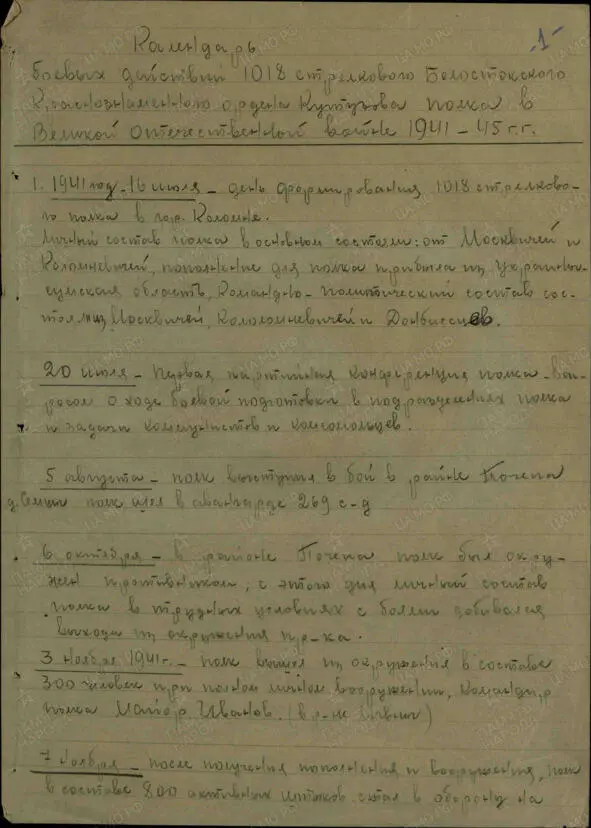 -1-
Календарь
боевых действий 1018 стрелкового Белостокского
Краснознаменного ордена Кутузова полка в
Великой отечественной войне 1941-45 г.г.
1. 1941 год-16 июля - день формирования 1018 стрелково-
го полка в гор. Коломне.
Личный состав полка в основном состоял: от Москвичей и
Коломневичей, пополнение для полка прибыло из Украины-
сумская область, Командно-политический состав сос-
тоял из Москвичей, Коломневичей и Донбассцев.
20 июля - Первая партийная конференция полка-воп-
росом о ходе боевой подготовки в подразделениях полка
и задачи коммунистов и комсомольцев.
5 августа - полк выступил в бой в районе Почепа
д. Семцы полк шел в авангарде 269 с-д
6 октября - в районе Почепа полк был окру-
жен противником, с этого дня личный состав
полка в трудных условиях с боями добивался
выхода из окружения пр-ка.
3 ноября 1941г. - полк вышел из окружения в составе
300 человек при полном личном вооружении, командир
полка Майор Иванов. (в р-не Ливны)
7 ноября - после получения пополнения и вооружения, полк
в составе 800 активных штыков стал в оборону на